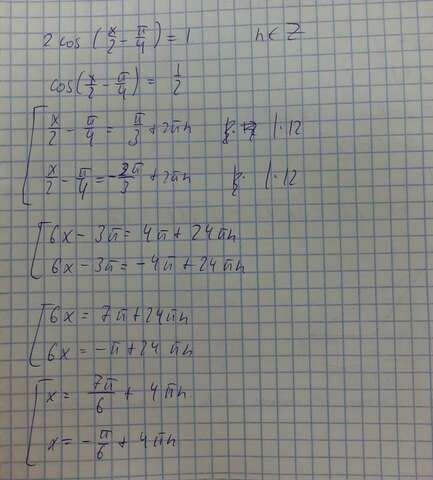 2 cos (x/2 - π/4) = 1 n ∈ Z
cos(x/2 - π/4) = 1/2
x/2 - π/4 = π/3 + 2πn |·12
x/2 - π/4 = -π/3 + 2πn |·12
6x - 3π = 4π + 24πn
6x - 3π = -4π + 24πn
6x = 7π + 24πn
6x = -π + 24πn
x = 7π/6 + 4πn
x = -π/6 + 4πn